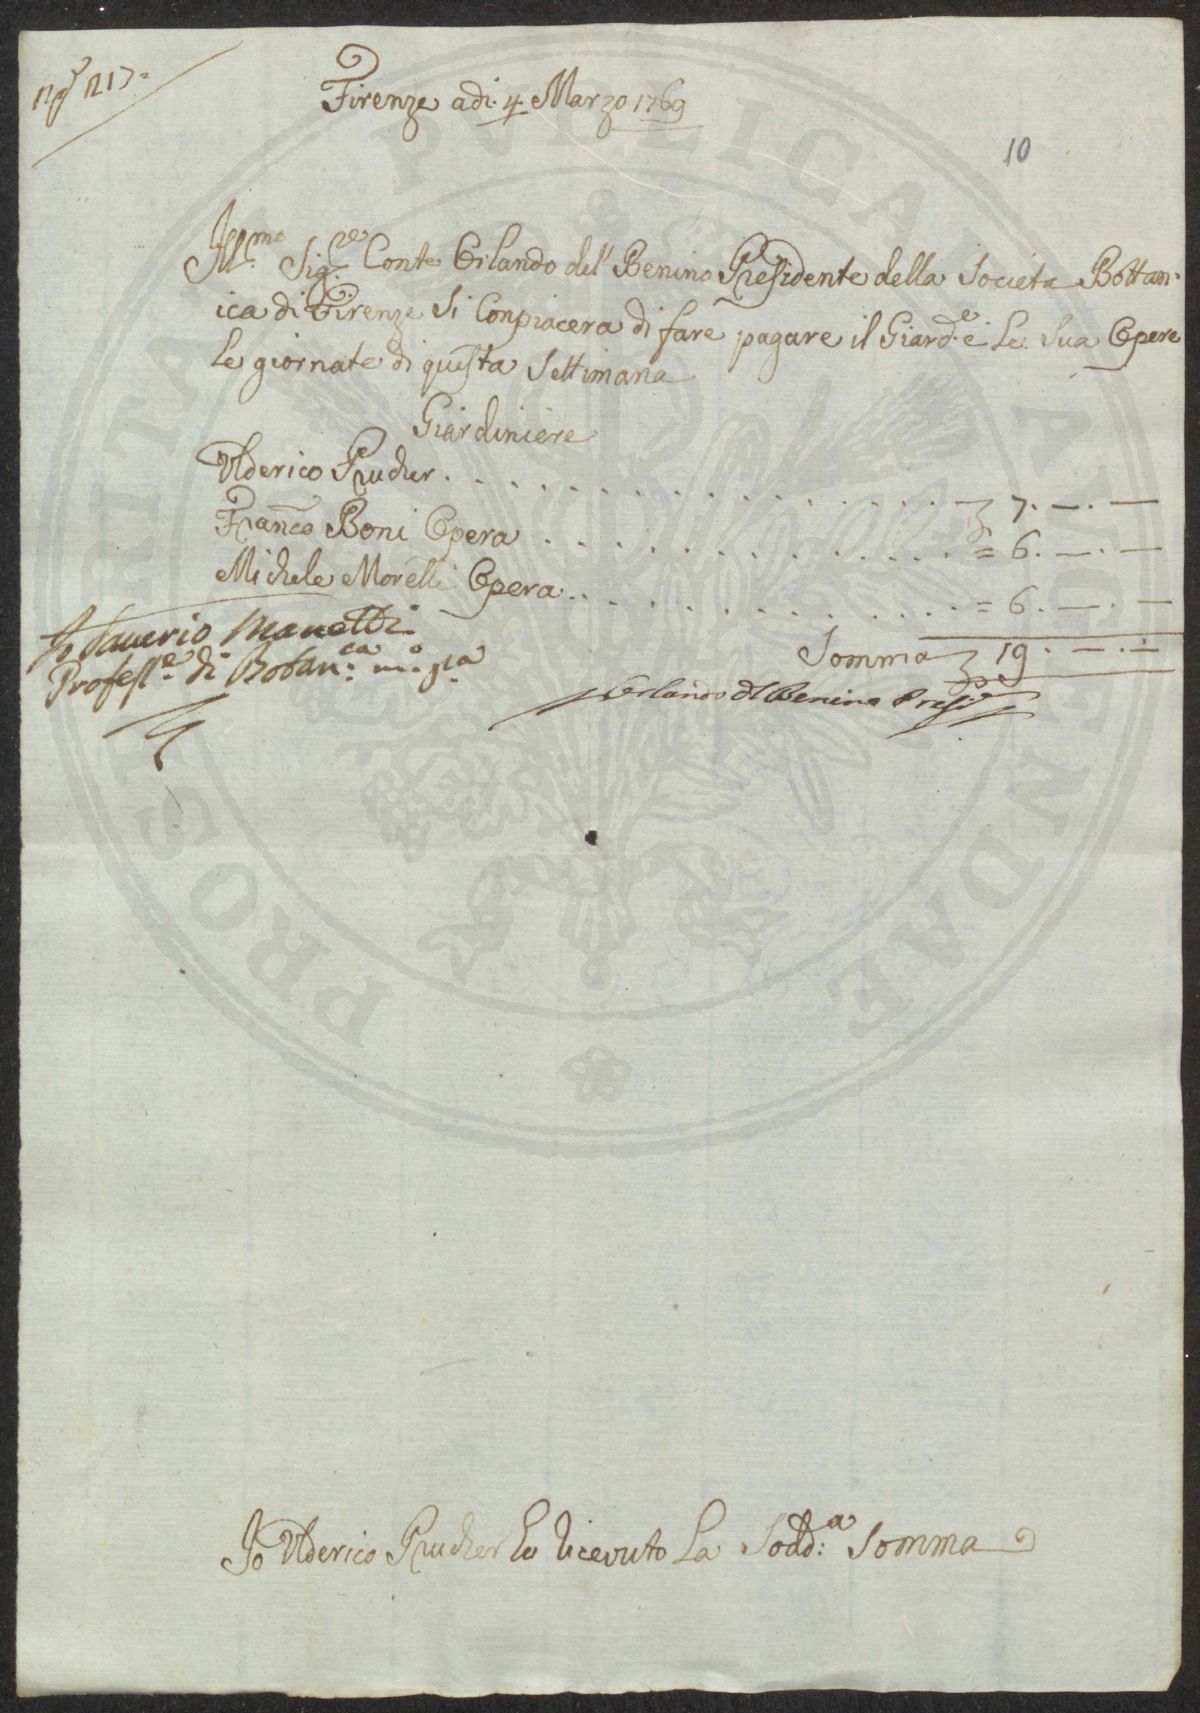 Firenze adi 4 Marzo 1769
10
Ill.mo Sig.re Conte Orlando del Benino Presidente della Societa Bottan
ica di Firenze Si Conpiacera di fare pagare il Giard.e e Le Sua Opere
Le giornate di questa Settimana
Giardiniere
Ulderico Prucher . . . . . . . . . . . . . . . . . . 7. —. —
Franco Boni Opera . . . . . . . . . . . . . . = 6. —. —
Michele Morelli Opera . . . . . . . . . . . . . = 6. —. —
Somma 19. —. —
Io Saverio Manetti
Profess.e di Botan.ca m.o p.a
Orlando del Benino Presid.e
Io Ulderico Prucher ho ricevuto La Sodd.a Somma
PROSPERITATI PVBLICAE AVGENDAE